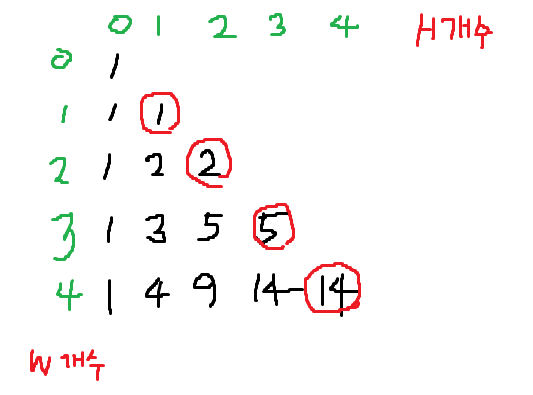 0 1 2 3 4 H개수
0 1
1 1 1
2 1 2 2
3 1 3 5 5
4 1 4 9 14 14
W개수